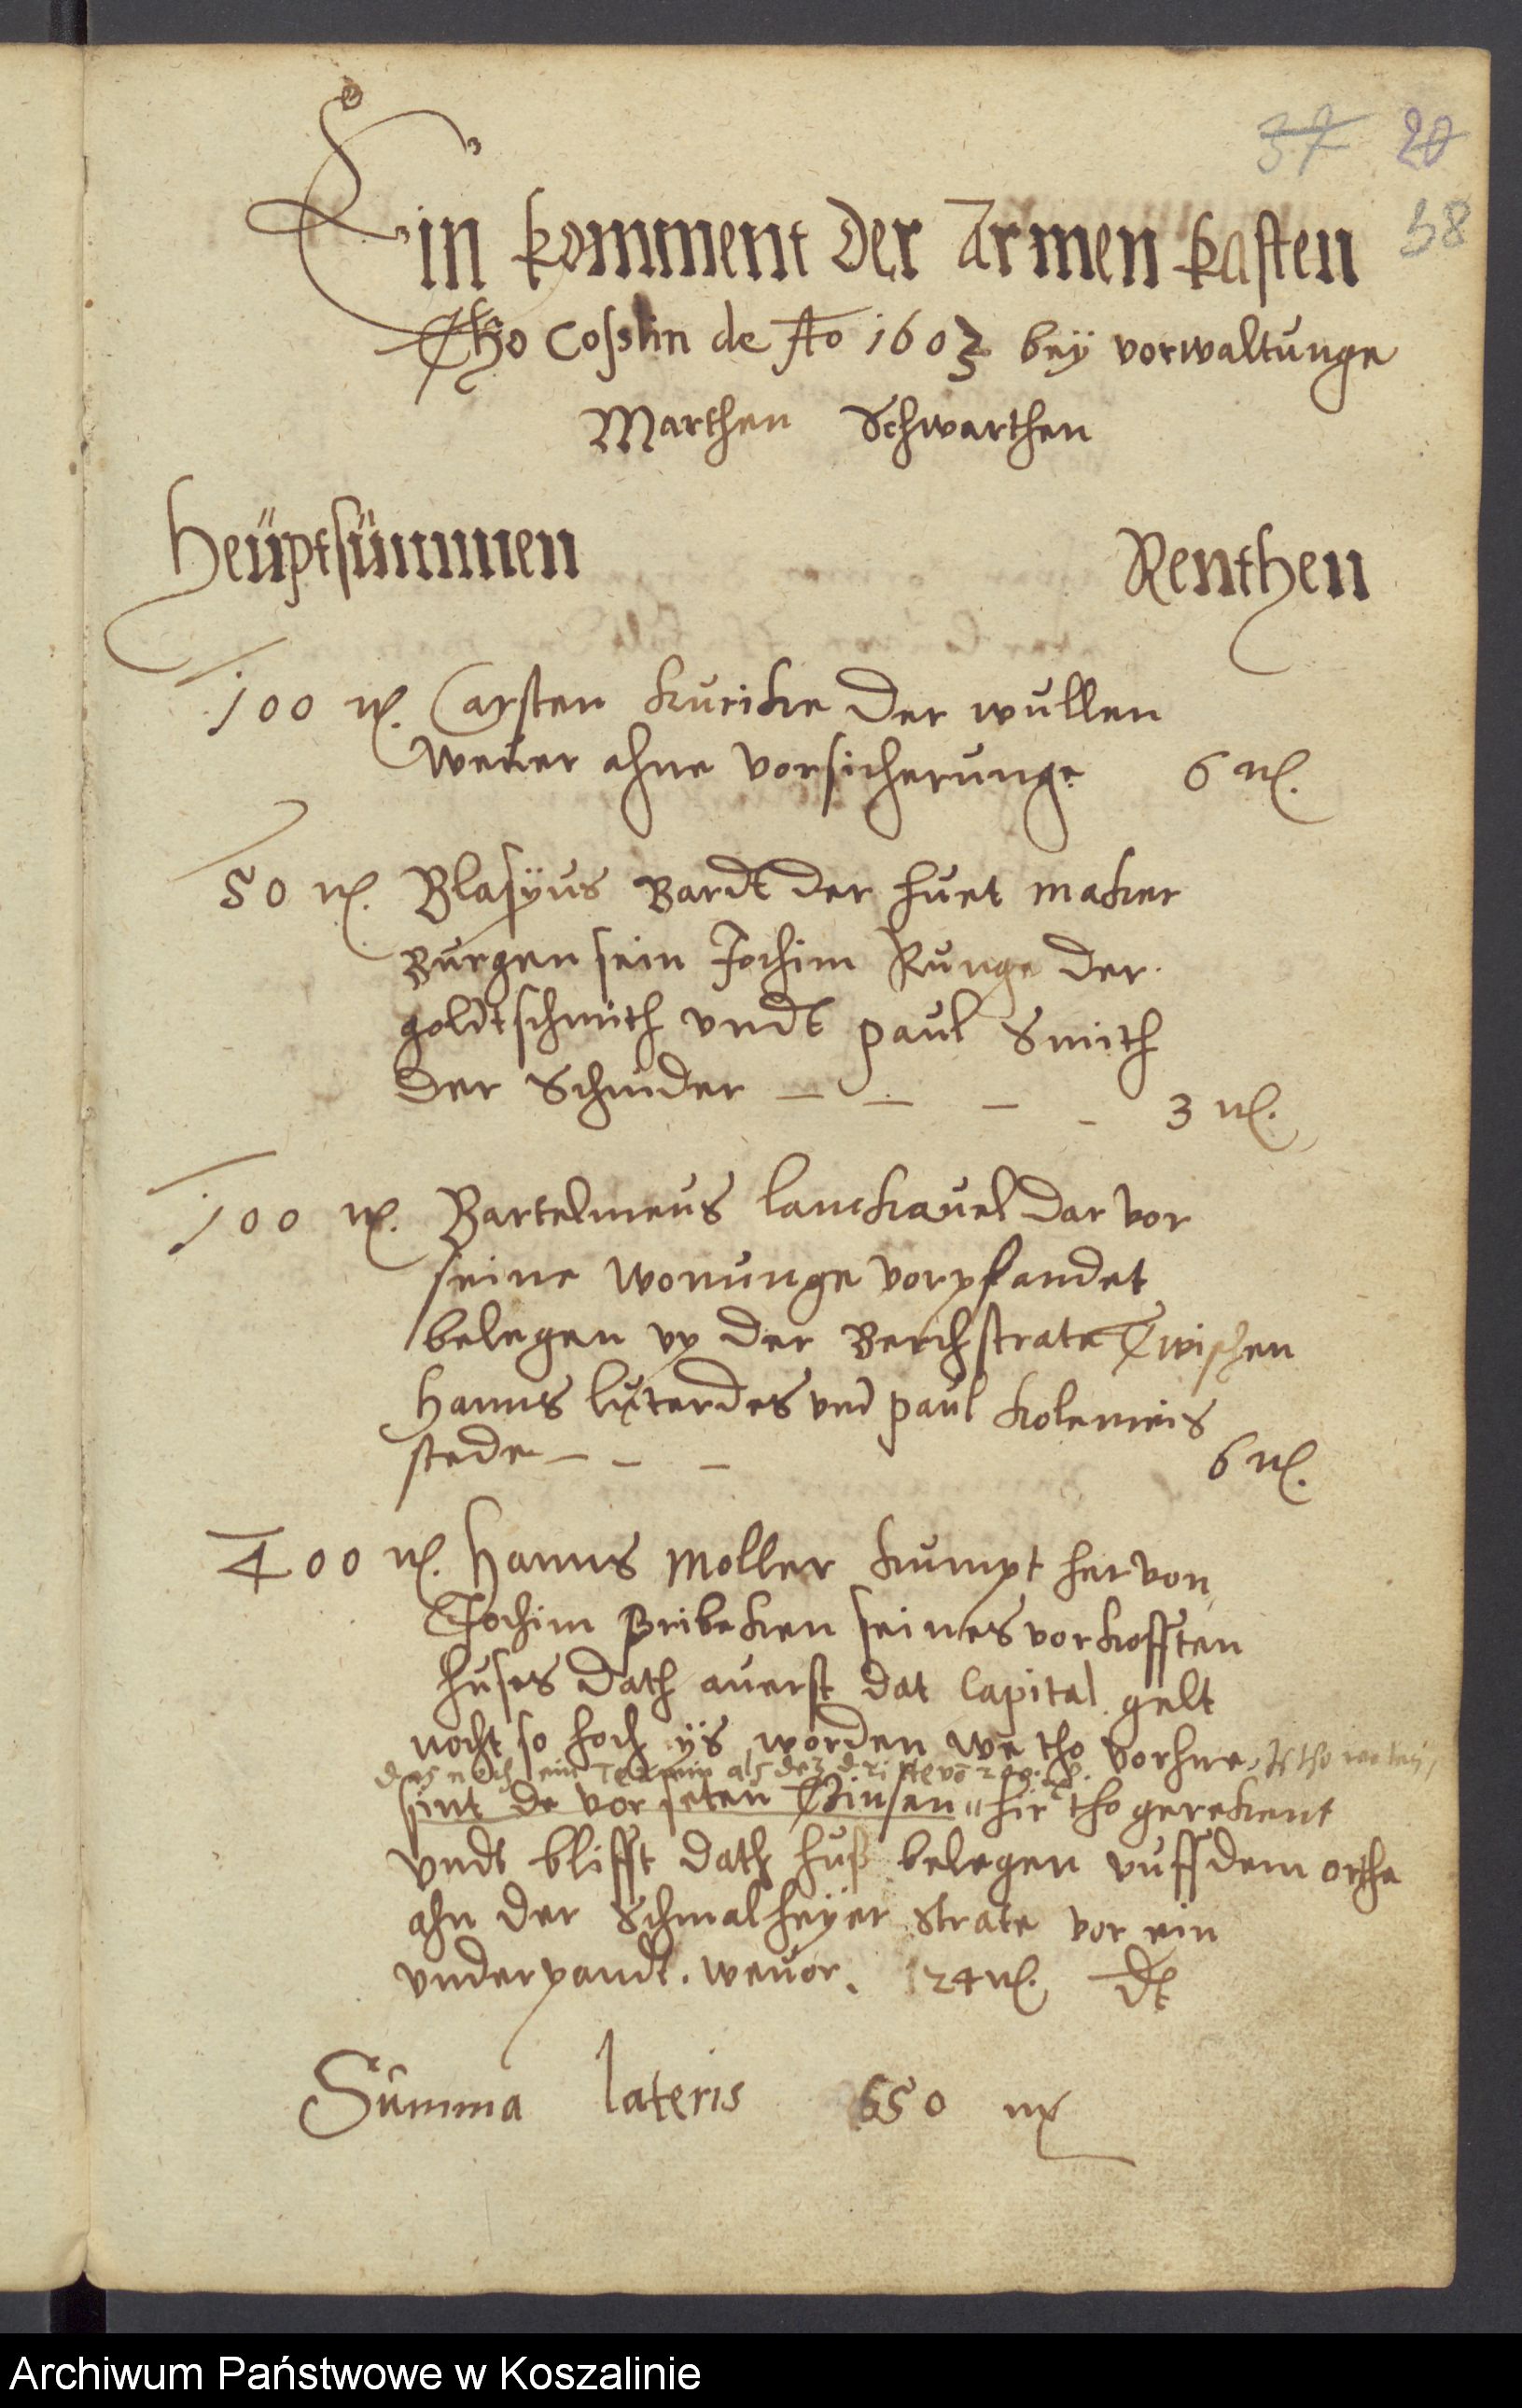 37 20
38
Ein komment der Armen kasten
Tho Cosslin de Ao 1603 beÿ vorwaltunge
Marthen Schwarthen
Heüptsümmen Renthen
100 m. Carsten Kuricke der wullen
wever ahne vorsicherunge 6 m.
50 m. Blasÿus Bardt der huet maker
Burgen sein Jochim Runge der
goldtschmith vndt paul Smith
der Schnider 3 m.
100 m. Bartelmeus lanckavel dar vor
seine wonunge vorpfandet
belegen vp der Berchstrate Twischen
Hanns luterdes vnd paul Kolemeis
stede 6 m.
400 m. Hanns Moller kumpt her von
Jochim Bribeken seines vorkofften
huses dath auerst dat Capital gelt
nocht so hoch ÿs worden we tho vorhne, Js tho weten,
das noch ein Termin als dez dritte vō 200. m.
sint de vorseten Zinsen hir tho gerekent
vndt blifft dath huß belegen vuff dem orthe
ahn der Schmalheÿer Strate vor ein
vnderpandt. wevor. 124 m. dt
Summa lateris 650 m
Archiwum Państwowe w Koszalinie